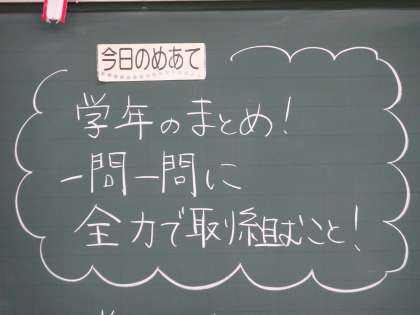 今日のめあて
学年のまとめ!
一問一問に
全力で取り組むこと!